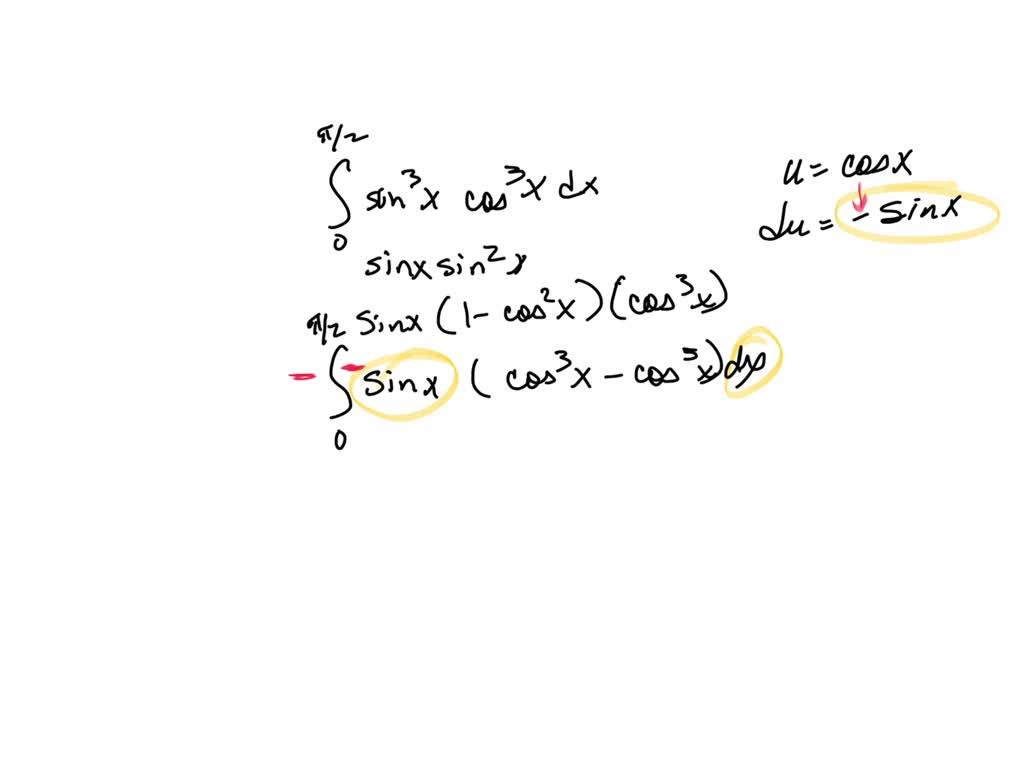 π/2
∫ sin³x cos³x dx
0
sinx sin²x
π/2 sinx (1 - cos²x)(cos³x)
- ∫ - sinx (cos³x - cos⁵x) dx
0
u = cosx
du = - sinx